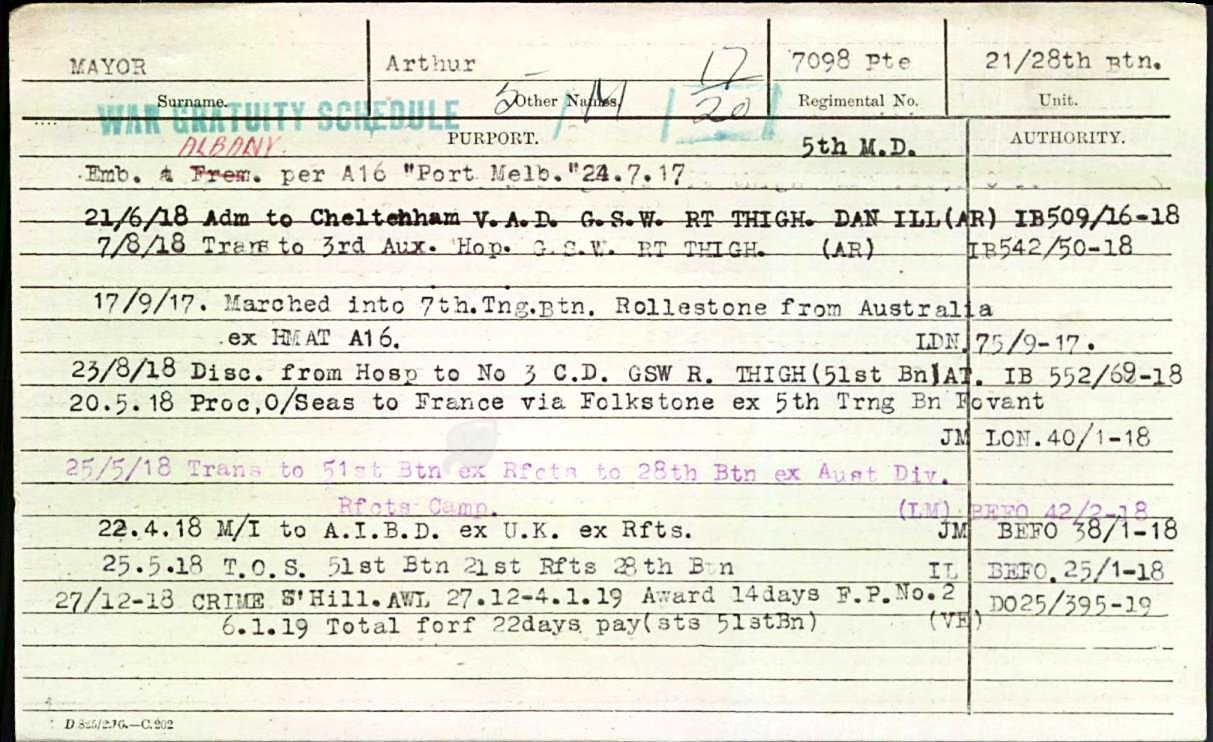 MAYOR Arthur 7098 Pte 21/28th Btn.
Surname. Other Names. Regimental No. Unit.
5 M 17/20
WAR GRATUITY SCHEDULE
PURPORT. AUTHORITY.
ALBANY. 5th M.D.
Emb. a Frem. per A16 "Port Melb."24.7.17
21/6/18 Adm to Cheltehham V.A.D. G.S.W. RT THIGH. DAN ILL(AR) IB509/16-18
7/8/18 Trans to 3rd Aux. Hop. G.S.W. RT THIGH. (AR) IB542/50-18
17/9/17. Marched into 7th.Tng.Btn. Rollestone from Australia
ex HMAT A16. LDN.75/9-17.
23/8/18 Disc. from Hosp to No 3 C.D. GSW R. THIGH(51st Bn)AT. IB 552/69-18
20.5.18 Proc,O/Seas to France via Folkstone ex 5th Trng Bn Fovant
JM LON.40/1-18
25/5/18 Trans to 51st Btn ex Rfcts to 28th Btn ex Aust Div.
Rfcts Camp. (LM) BEFO 42/2-18
22.4.18 M/I to A.I.B.D. ex U.K. ex Rfts. JM BEFO 38/1-18
25.5.18 T.O.S. 51st Btn 21st Rfts 28th Btn IL BEFO.25/1-18
27/12-18 CRIME S'Hill.AWL 27.12-4.1.19 Award 14days F.P.No.2 DO25/395-19
6.1.19 Total forf 22days pay(sts 51stBn) (VE)